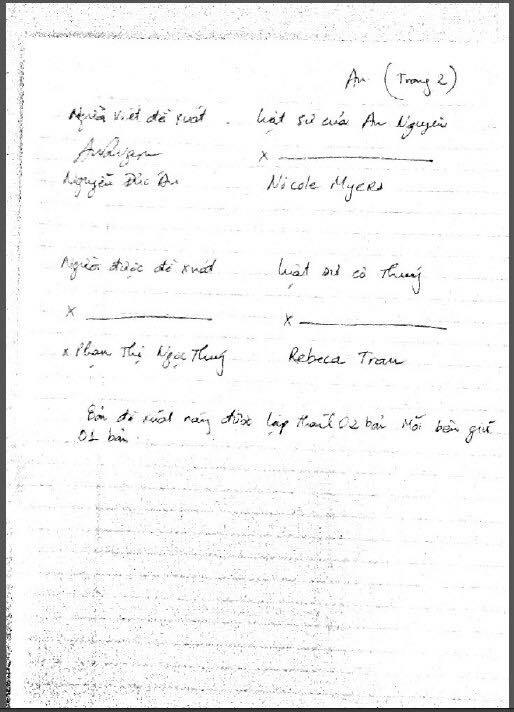 An (Trang 2)
Người viết đề xuất . Luật sư của An Nguyen
X
Nguyễn Đức An Nicole Myers
Người được đề xuất Luật sư cô Thuý
X X
x Phan Thị Ngọc Thuý Rebeca Tran
Bản đề xuất này được lập thành 02 bản Mỗi bên giữ
01 bản.